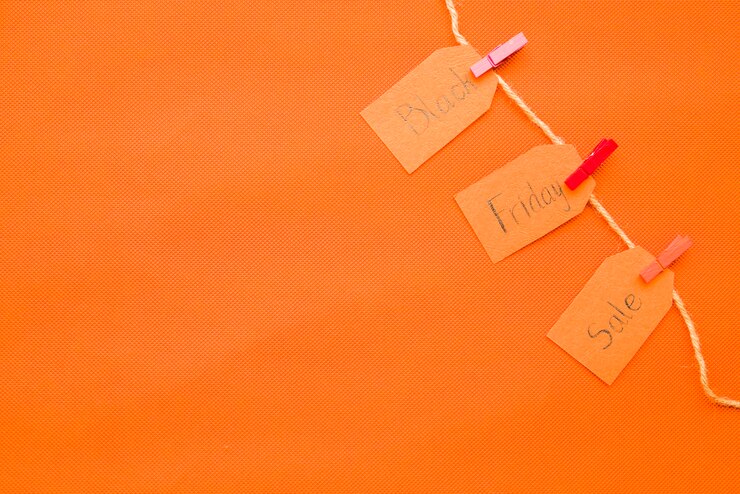 Black
Friday
Sale